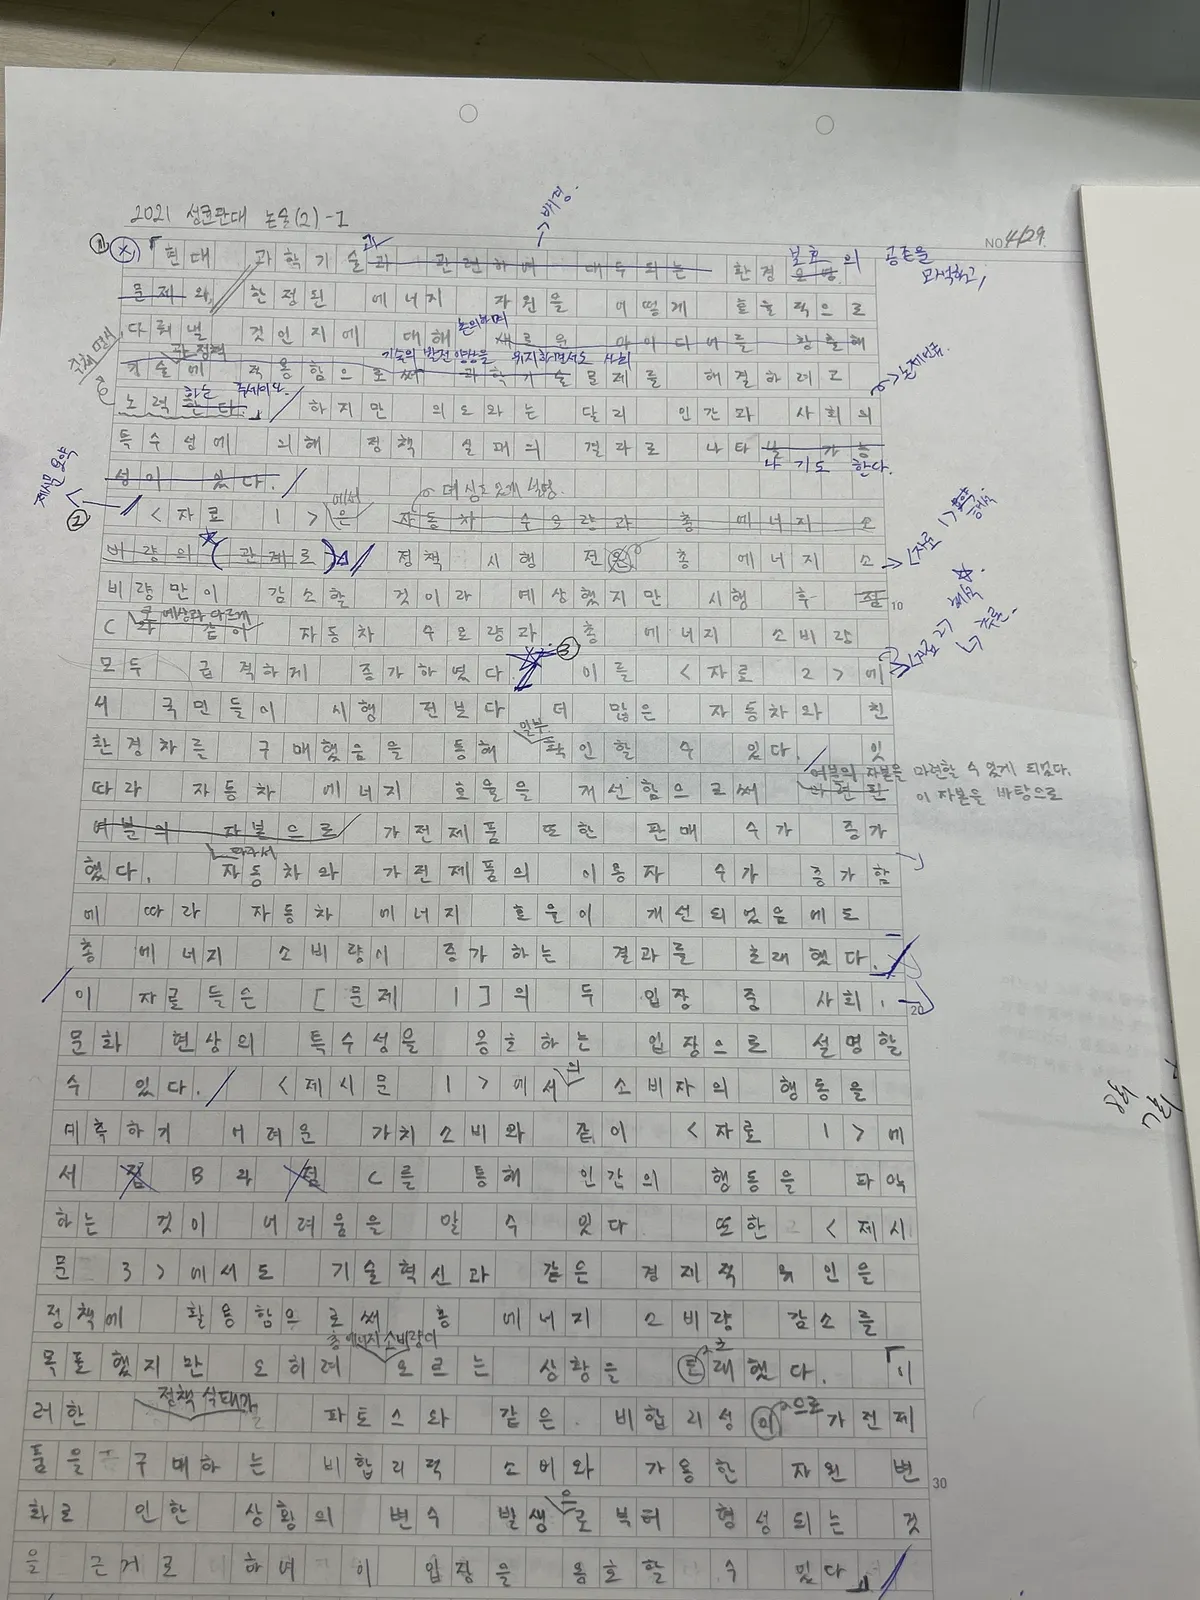 2021 성균관대 논술(2)-1
→배경.
NO. 4/29.
① 「현대 과학기술과 관련하여 대두되는 환경 보호의 공존을 모색하고,
문제와 한정된 에너지 자원을 어떻게 효율적으로
다뤄낼 것인지에 대해 논의하며 새로운 아이디어를 창출해
주체 명시
기술의 발전 양상을 유지하면서도 사회
기술에 적용함으로써 과학기술 문제를 해결하려고
→논제언급
하는 추세이다.
노력한다.」 하지만 의도와는 달리 인간과 사회의
특수성에 의해 정책 실패의 결과로 나타날 가능
나기도 한다.
성이 있다.
제시문 요약
더 심도있게 설명.
② <자료 1>은 에서 자동차 수요량과 총 에너지 소
비량의 (관계로) 정책 시행 전은 총 에너지 소
→<자료 1> 요약 해석
비량만이 감소할 것이라 예상했지만 시행 후 점 10
예상과 다르게
C와 같이 자동차 수요량과 총 에너지 소비량
모두 급격하게 증가하였다. ③ 이를 <자료 2>에
<자료 2> 해석 ↳ 추론.
서 국민들이 시행 전보다 더 많은 자동차와 친
일부
환경차를 구매했음을 통해 확인할 수 있다. 잇
여분의 자본을 마련할 수 있게 되었다.
따라 자동차 에너지 효율을 개선함으로써 마련한
이 자본을 바탕으로
여분의 자본으로 가전제품 또한 판매 수가 증가
따라서
했다. 자동차와 가전제품의 이용자 수가 증가함
에 따라 자동차 에너지 효율이 개선되었음에도
총 에너지 소비량이 증가하는 결과를 초래했다.
이 자료들은 [문제 1]의 두 입장 중 사회, 20
문화 현상의 특수성을 옹호하는 입장으로 설명할
수 있다. <제시문 1>에서의 소비자의 행동을
예측하기 어려운 가치소비와 같이 <자료 1>에
서 점 B와 점 C를 통해 인간의 행동을 파악
하는 것이 어려움을 알 수 있다. 또한 <제시
문 3>에서도 기술혁신과 같은 경제적 유인을
정책에 활용함으로써 총 에너지 소비량 감소를
총 에너지 소비량이
목표했지만 오히려 오르는 상황을 초래했다. 「이
정책 실패가
러한 파토스와 같은 비합리성으로 가전제
품을 구매하는 비합리적 소비와 가용한 자원 변 30
화로 인한 상황의 변수 발생으로부터 형성되는 것
을 근거로 하여 이 입장을 옹호할 수 있다.」